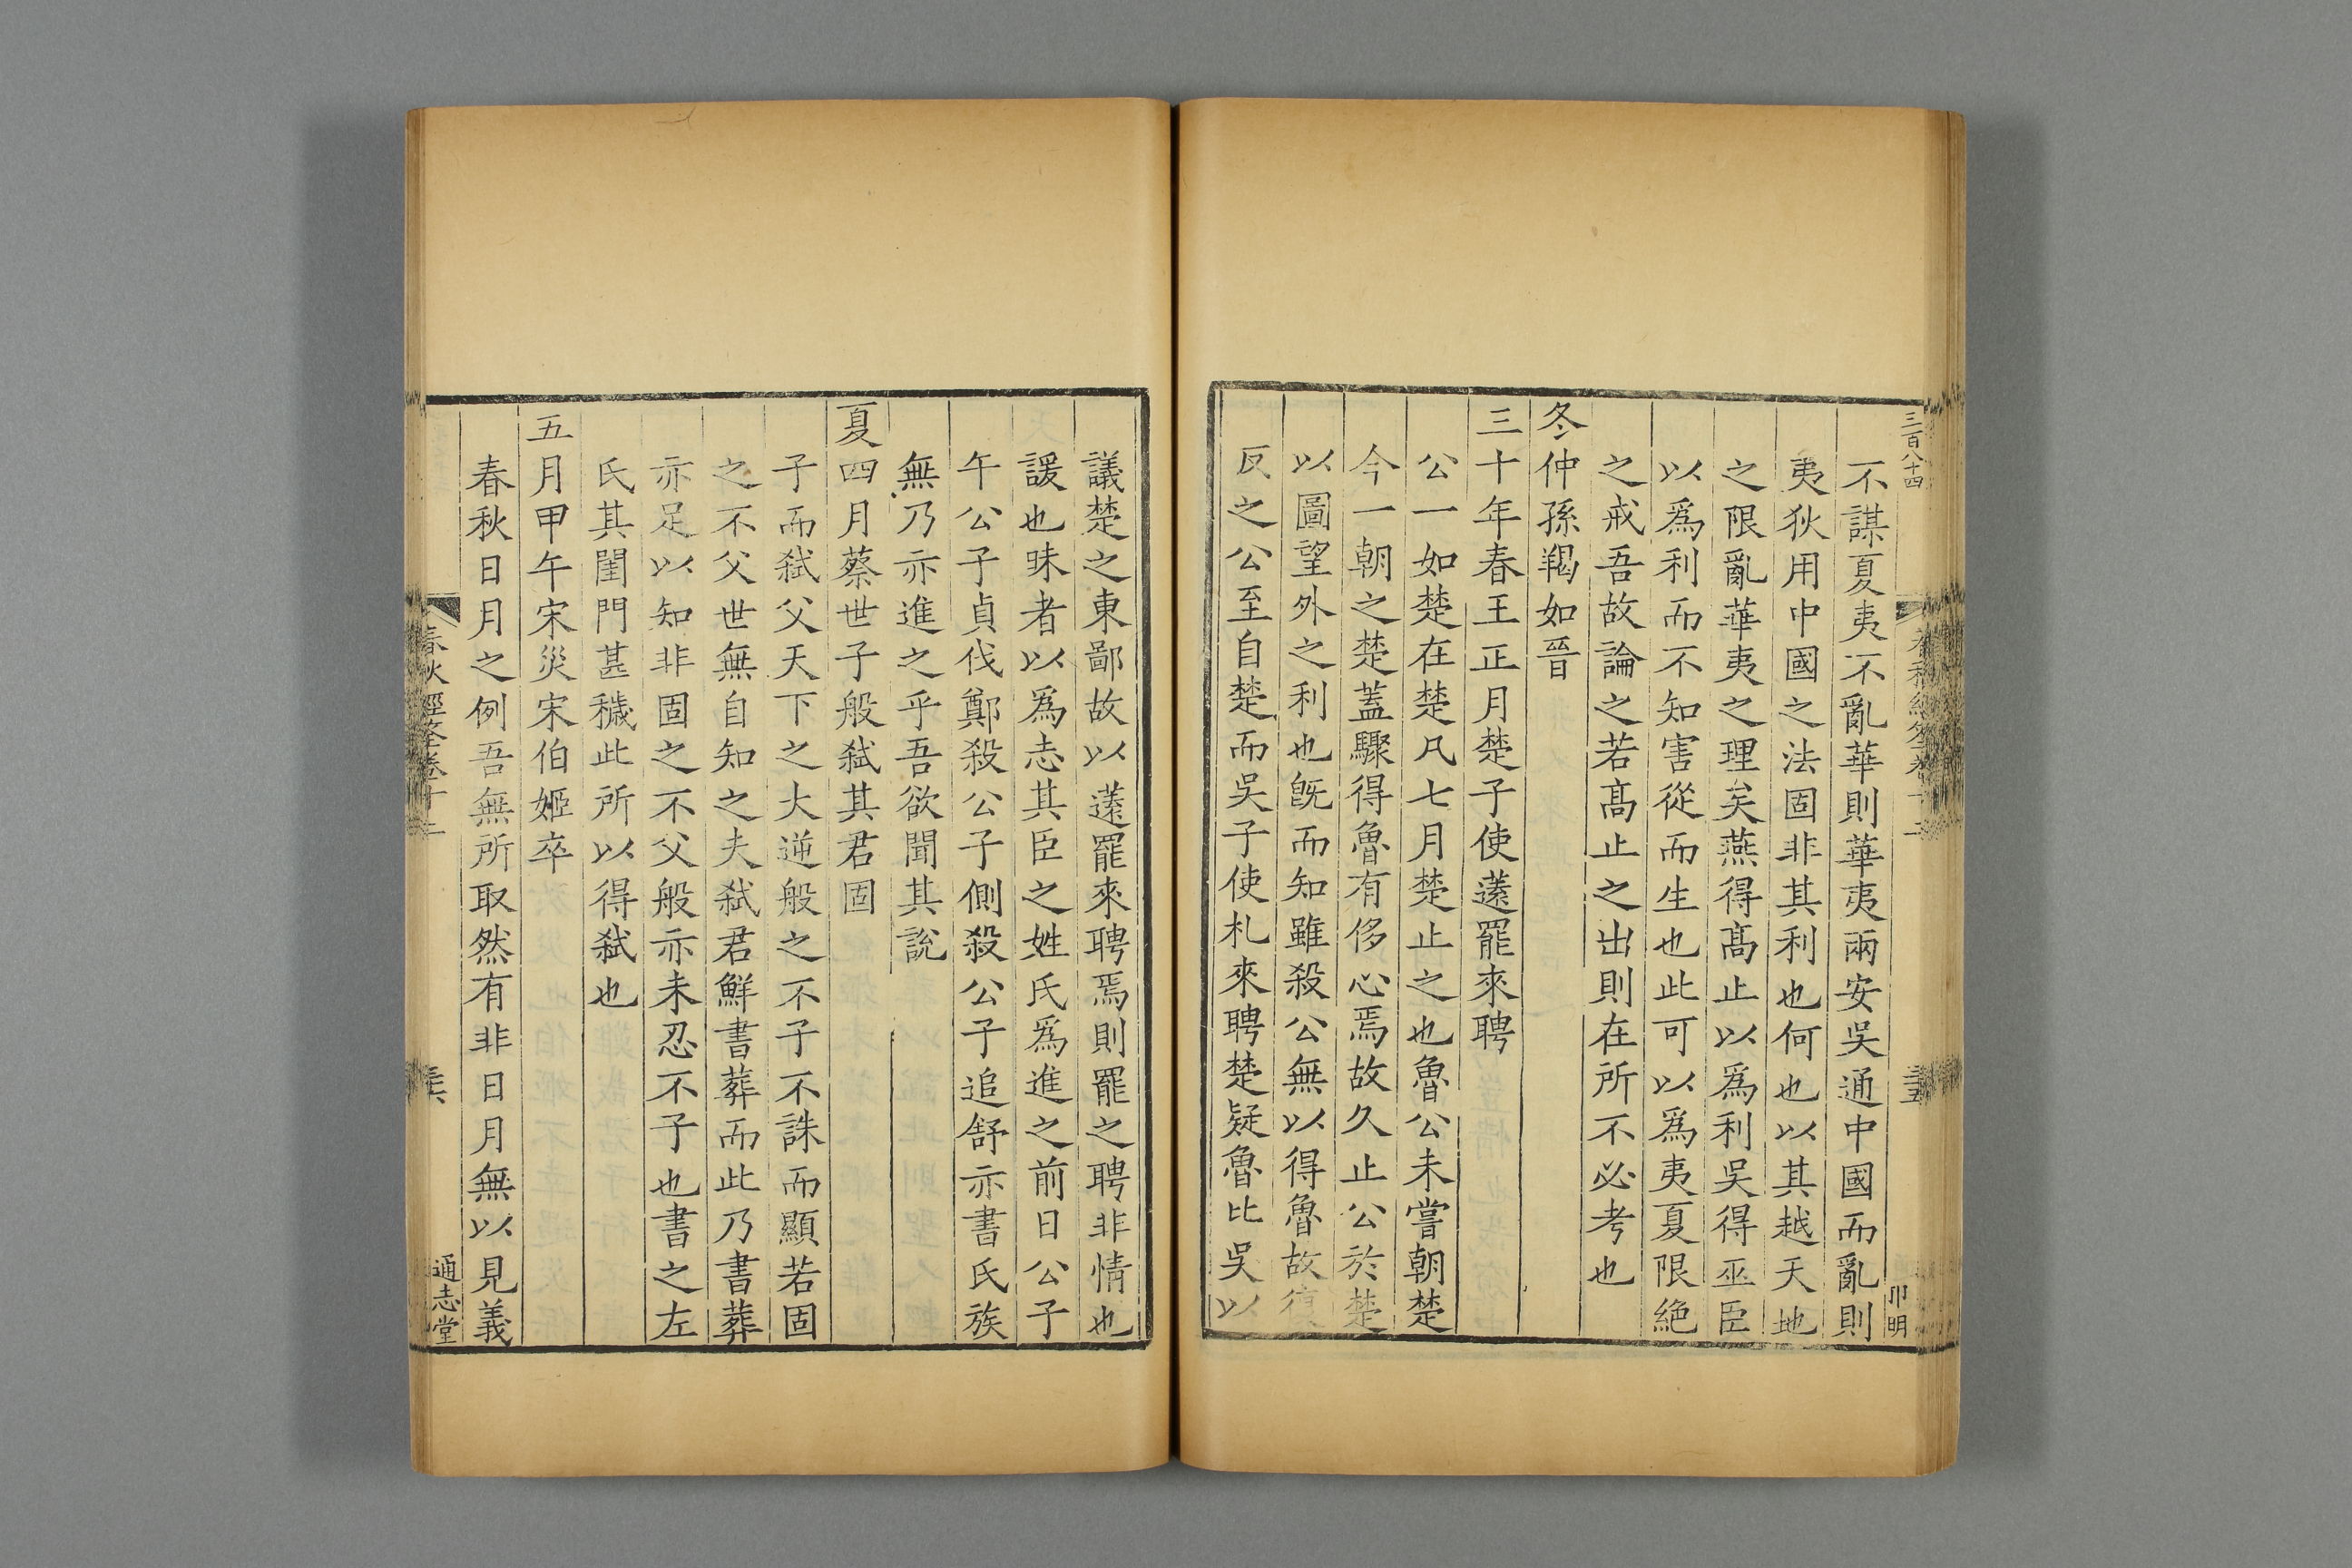 三百八十四
不謀夏夷不亂華則華夷兩安吳通中國而亂則
夷狄用中國之法固非其利也何也以其越天地
之限亂華夷之理矣燕得髙止以爲利吳得巫臣
以爲利而不知害從而生也此可以爲夷夏限絶
之戒吾故論之若髙止之出則在所不必考也
冬仲孫羯如晉
三十年春王正月楚子使薳罷來聘
公一如楚在楚凡七月楚止之也魯公未嘗朝楚
今一朝之楚蓋驟得魯有侈心焉故久止公於楚
以圖望外之利也旣而知雖殺公無以得魯故復
反之公至自楚而吳子使札來聘楚疑魯比吳以
卷十二
三五
卬明
議楚之東鄙故以薳罷來聘焉則罷之聘非情也
諼也昧者以爲志其臣之姓氏爲進之前日公子
午公子貞伐鄭殺公子側殺公子追舒亦書氏族
無乃亦進之乎吾欲聞其說
夏四月蔡世子般弑其君固
子而弑父天下之大逆般之不子不誅而顯若固
之不父世無自知之夫弑君鮮書葬而此乃書葬
亦足以知非固之不父般亦未忍不子也書之左
氏其閨門甚穢此所以得弑也
五月甲午宋災宋伯姬卒
春秋日月之例吾無所取然有非日月無以見義
春秋經筌卷十二
三六
通志堂